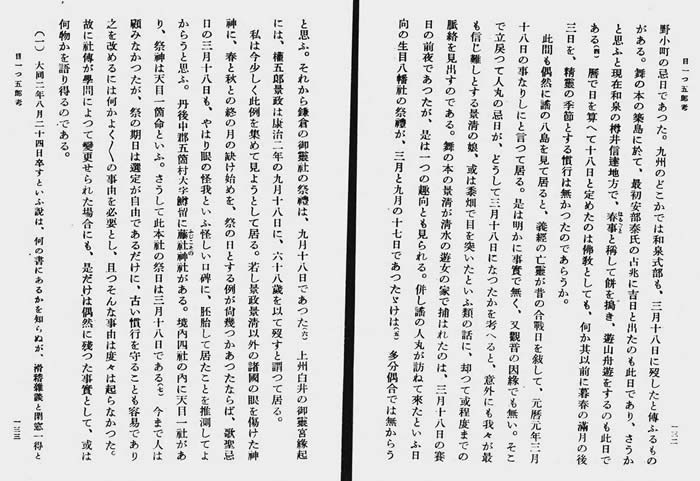 目一つ五郎考
一三二
野小町の忌日であつた。九州のどこかでは和泉式部も、三月十八日に歿したと傳ふるもの
がある。舞の本の築島に於て、最初安部泰氏の占兆に吉日と出たのも此日であり、さうか
と思ふと現在和泉の樽井信達地方で、春事と稱して餅を搗き、遊山舟遊をするのも此日で
ある(四)。曆で日を算へて十八日と定めたのは佛教としても、何か其以前に暮春の滿月の後
三日を、精靈の季節とする慣行は無かつたのであらうか。
此間も偶然に謠の八島を見て居ると、義經の亡靈が昔の合戰日を敍して、元曆元年三月
十八日の事なりしにと言つて居る。是は明かに事實で無く、又觀音の因緣でも無い。そこ
で立戻つて人丸の忌日が、どうして三月十八日になつたかを考へると、意外にも我々が最
も信じ難しとする景淸の娘、或は黍畑で目を突いたといふ類の話に、却つて或程度までの
脈絡を見出すのである。舞の本の景淸が淸水の遊女の家で捕はれたのは、三月十八日の賽
日の前夜であつたが、是は一つの趣向とも見られる。併し謠の人丸が訪ねて來たといふ日
向の生目八幡社の祭禮が、三月と九月の十七日であつたゞけは(五)、多分偶合では無からう
目一つ五郎考
一三三
と思ふ。それから鎌倉の御靈社の祭禮は、九月十八日であつた(六)。上州白井の御靈宮緣起
には、權五郎景政は康治二年の九月十八日に、六十八歲を以て歿すと謂つて居る。
私は今少しく此例を集めて見ようとして居る。若し景政景淸以外の諸國の眼を傷けた神
神に、春と秋との終の月の缺け始めを、祭の日とする例が尙幾つかあつたならば、歌聖忌
日の三月十八日も、やはり眼の怪我といふ怪しい口碑に、胚胎して居たことを推測してよ
からうと思ふ。丹後中郡五箇村大字鱒留に藤社神社がある。境內四社の內に天目一社があ
り、祭神は天目一箇命といふ。さうして此本社の祭日は三月十八日である(七)。今まで人は
顧みなかつたが、祭の期日は選定が自由であるだけに、古い慣行を守ることも容易であり
之を改めるには何かよく〱の事由を必要とし、且つそんな事由は度々は起らなかつた。
故に社傳が學問によつて變更せられた場合にも、是だけは偶然に殘つた事實として、或は
何物かを語り得るのである。
(一) 大同二年八月二十四日卒すといふ說は、何の書にあるかを知らぬが、滑稽雜談と閑窓一得と